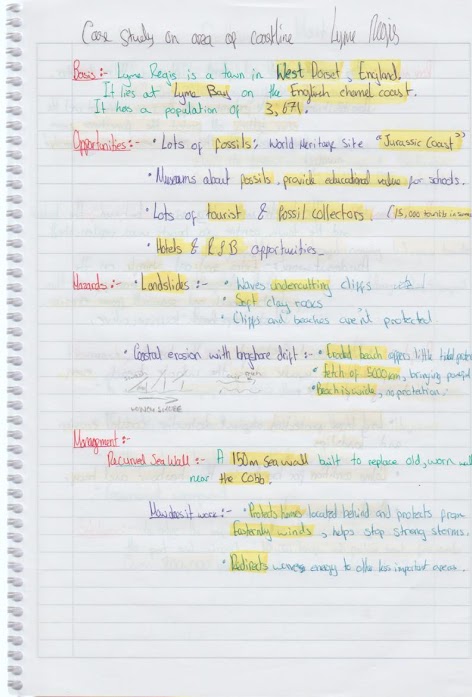 Case Study on area of coastline Lyme Regis
Basis:- Lyme Regis is a town in West Dorset, England.
It lies at Lyme Bay on the English channel coast.
It has a population of 3,671.
Opportunities:- • Lots of fossils; World Heritage Site "Jurassic Coast"
• Museums about fossils, provide educational value for schools.
• Lots of tourist & fossil collectors. (15,000 tourists in
• Hotels & B&B opportunities.
Hazards:- • Landslides:- • Waves undercutting cliffs
• Soft clay rocks
• Cliffs and beaches aren't protected
• Coastal erosion with longshore drift:- • beach offers little
• fetch of 5000km, bringing powerful
• Beach is wide, no protration.
Management:-
Recurved Sea Wall:- A 150m sea wall built to replace old, worn wall
near the Cobb.
How does it work:- • Protects homes located behind and protects from
Easternly winds, helps stop strong storms.
• Redirects waves energy to othe less important areas.